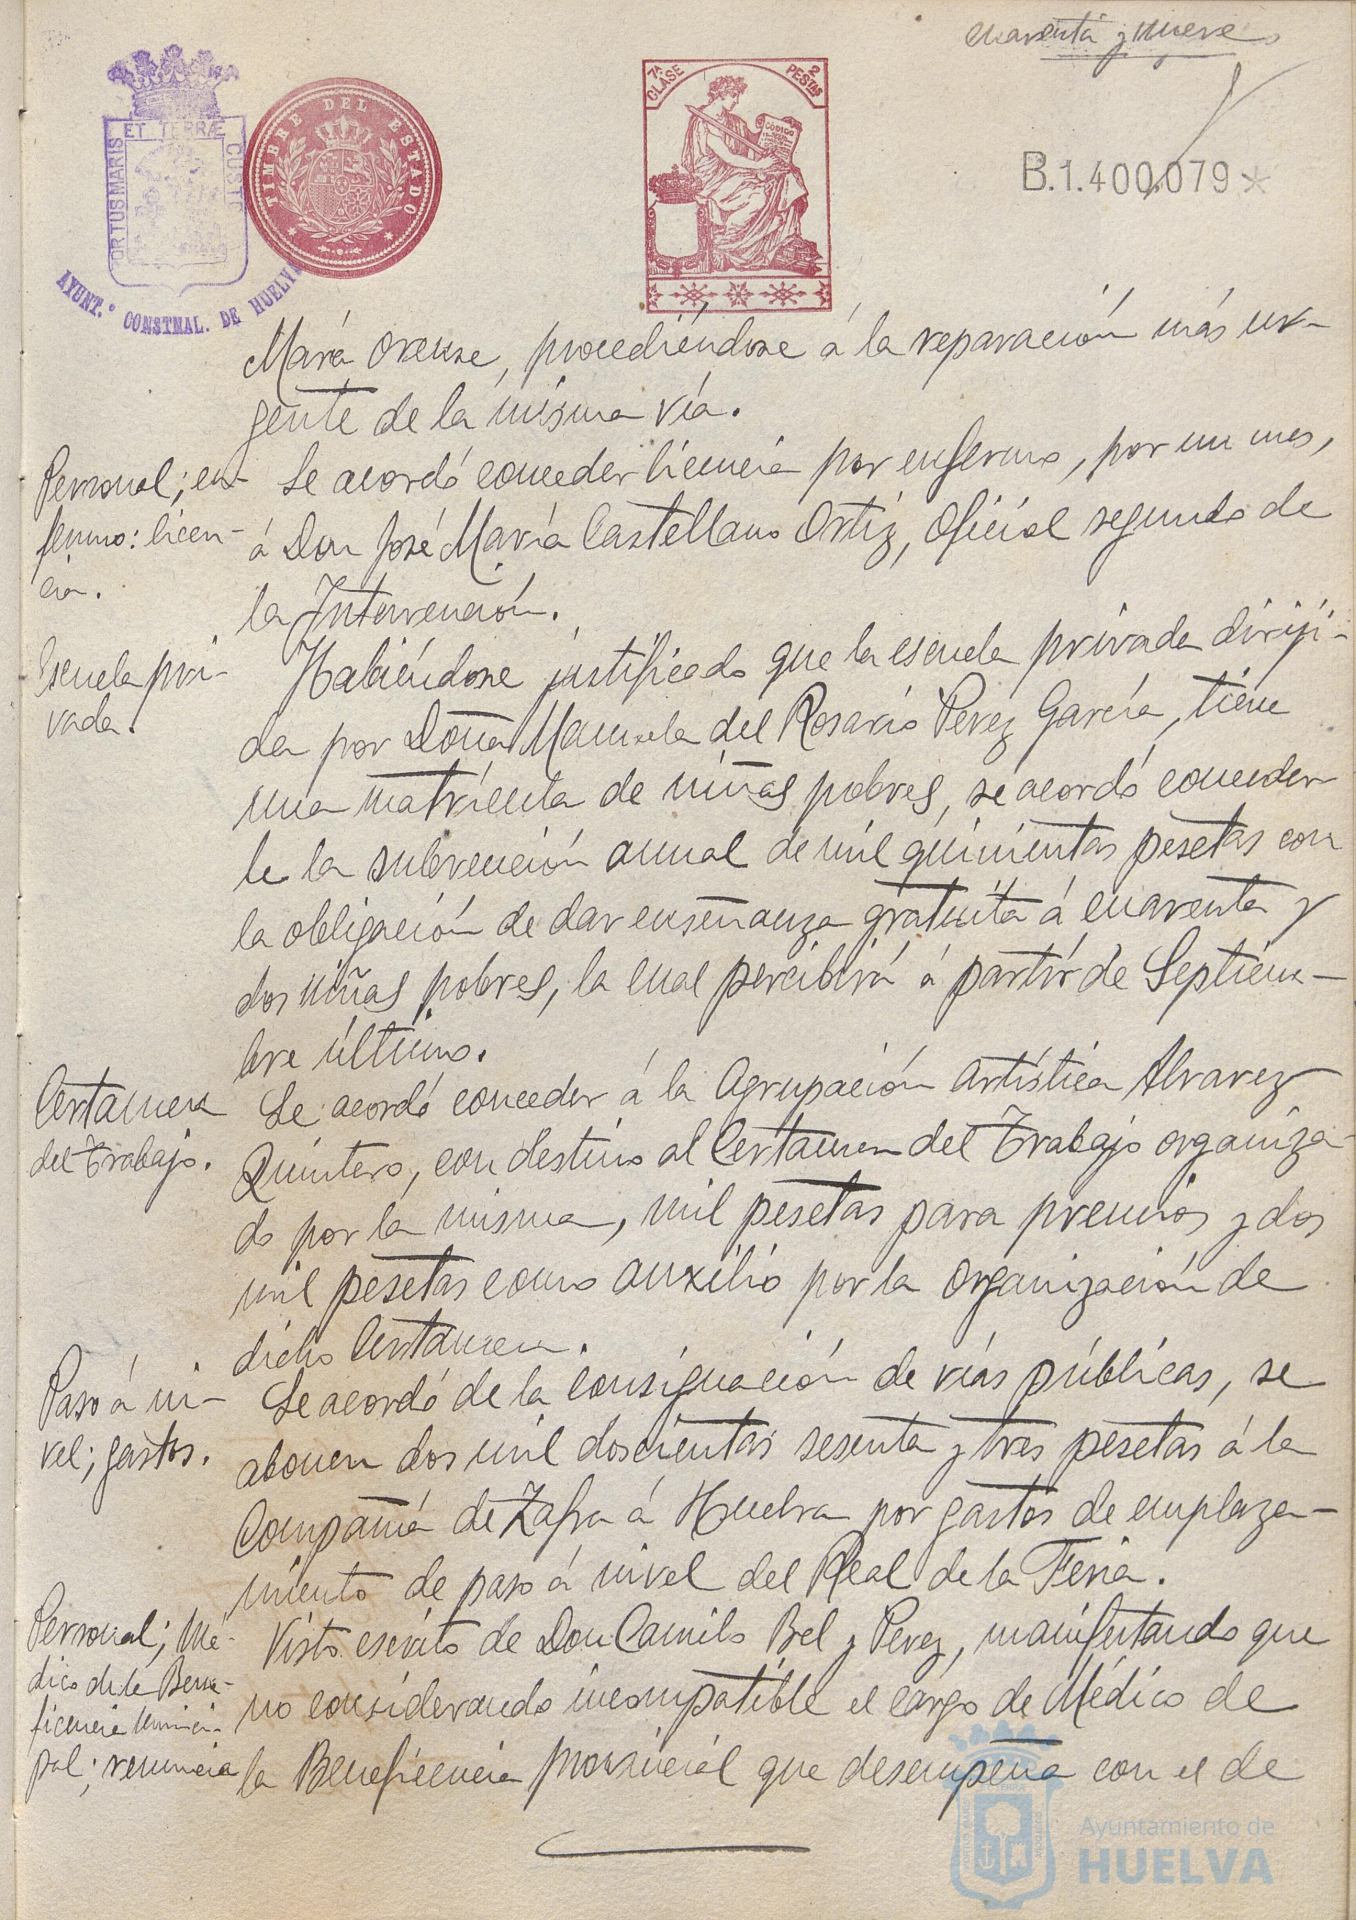 cuarenta y nueve
ORTUS MARIS ET TERRÆ CUSTO
AYUNT.º CONSTNAL. DE HUELVA
TIMBRE DEL ESTADO
7ª CLASE
2 PESTAS
CODIGO
B.1.400.079*
Mará Orense, procediéndose á la reparación más ur-
gente de la misma vía.
Personal; en-
fermo: licen-
cia.
Se acordó conceder licencia por enfermo, por un mes,
á Don José María Castellano Ortiz, Oficial segundo de
la Intervención.
Escuela pri-
vada.
Habiéndose justificado que la escuela privada dirigi-
da por Doña Manuela del Rosario Perez García, tiene
una matrícula de niñas pobres, se acordó conceder
le la subvención anual de mil quinientas pesetas con
la obligación de dar enseñanza gratuita á cuarenta y
dos niñas pobres, la cual percibirá á partir de Septiem-
bre último.
Certamen
del Trabajo.
Se acordó conceder á la Agrupación Artística Alvarez
Quintero, con destino al Certamen del Trabajo organiza-
do por la misma, mil pesetas para premios y dos
mil pesetas como auxilio por la organización de
dicho Certamen.
Paso á ni-
vel; gastos.
Se acordó de la consignación de vías públicas, se
abonen dos mil doscientas sesenta y tres pesetas á la
Compañía de Zafra á Huelva por gastos de emplaza-
miento de paso á nivel del Real de la Feria.
Personal; Mé-
dico de la Bene-
ficencia Munici-
pal; renuncia
Visto escrito de Don Camilo Bel y Perez, manifestando que
no considerando incompatible el cargo de Médico de
la Beneficencia provincial que desempeña con el de
Ayuntamiento de
HUELVA